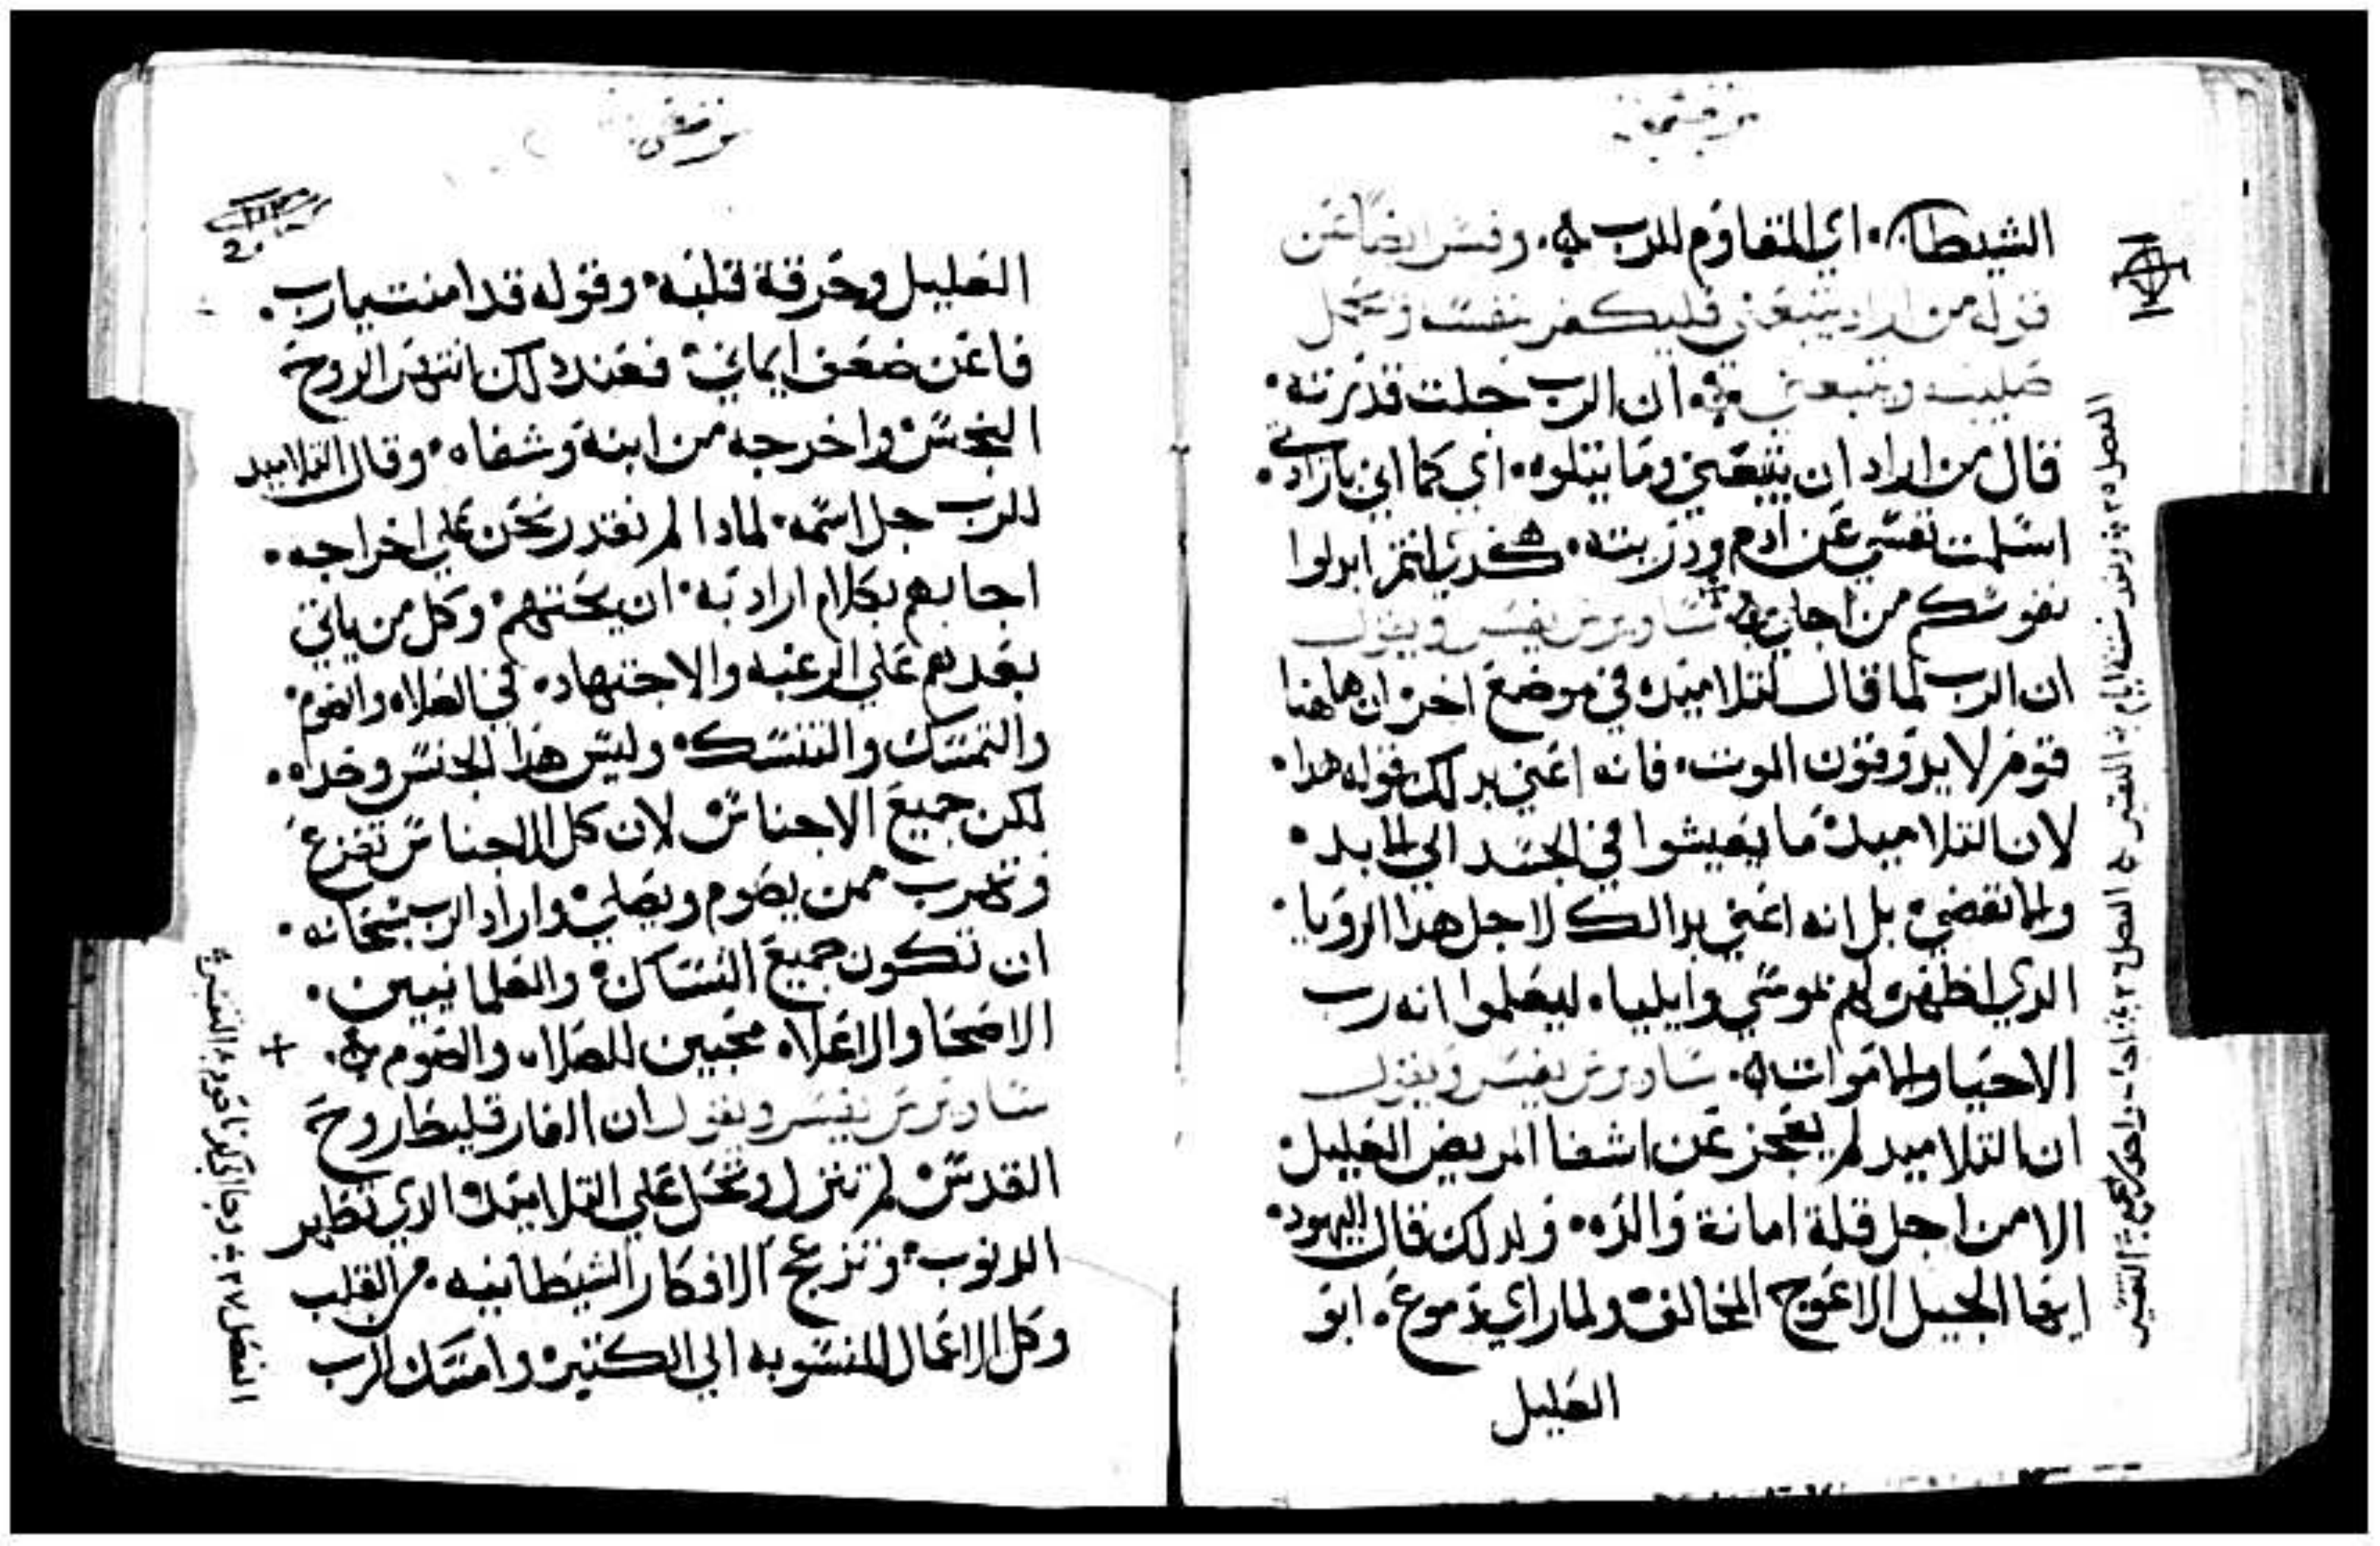 الشيطان. اي المقاوم للرب. وفسر ايضا عن
قوله من اراد يتبعني فليكفر بنفسه ويحمل
صليبه ويتبعني ان الرب جلت قدرته.
قال من اراد ان يتبعني وما يتلوه. اي كما اني بارادتي.
اسلمت نفسي عن ادم ودريته. كدلك انتم ابدلوا
نفوسكم من اجلي ساويرس يفسر ويقول
ان الرب لما قال لتلاميده في موضع اخر ان هاهنا
قوم لا يدوقون الموت. فانه اعني بدلك قوله هدا.
لان التلاميد ما يعيشوا في الجسد الي الابد.
ولما تقضي بل انه اعني بدالك لاجل هدا الرويا.
الدي اظهره لهم بموسي وايليا. ليعلموا انه رب
الاحيا والاموات. ساويرس يفسر ويقول
ان التلاميد لم يعجز عن اشفا المريض العليل
الا من اجل قلة امانة والده. ولدلك قال لليهود.
ايها الجيل الاعوج المخالف ولما راي دموع. ابو
العليل
العليل وحرقة قلبه. وقوله قد امنت يارب.
فاعن ضعف ايماني فعند دلك انتهر الروح
النجس واخرجه من ابنه وشفاه. وقال التلاميد
للرب جل اسمه. لمادا لم نقدر نحن علي اخراجه.
اجابهم بكلام اراد به. ان يحتهم وكل من ياتي
بعدهم علي الرغبه والاجتهاد. في الصلاه والصوم
والتمسك والتنسك. وليس هدا الجنس وحده.
لكن جميع الاجناس لان كل الاجناس تفزع
وتهرب ممن يصوم ويصلي واراد الرب سبحانه.
ان تكون جميع النساك والعلمانيين.
الاصحا والاعلاه محبين للصلاه والصوم.
ساويرس يفسر ويقول ان الفارقليط روح
القدس لم تنزل وتحل علي التلاميد الدي تطهر
الدنوب. وتنزع الافكار الشيطانيه. من القلب
وكل الاعمال المنسوبه الي الكتيره وامسك الرب